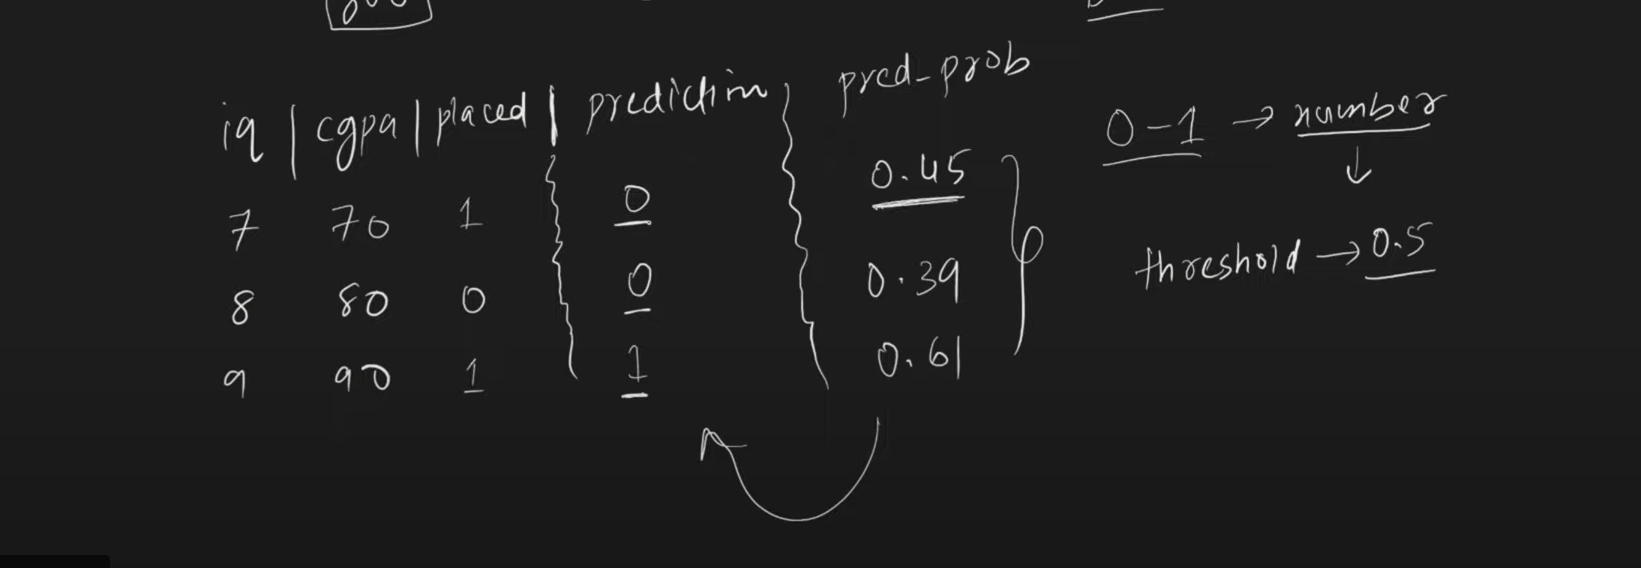 iq | cgpa | placed | prediction pred-prob
7 70 1 0 0.45
8 80 0 0 0.39
9 90 1 1 0.61
0-1 → number
↓
threshold → 0.5